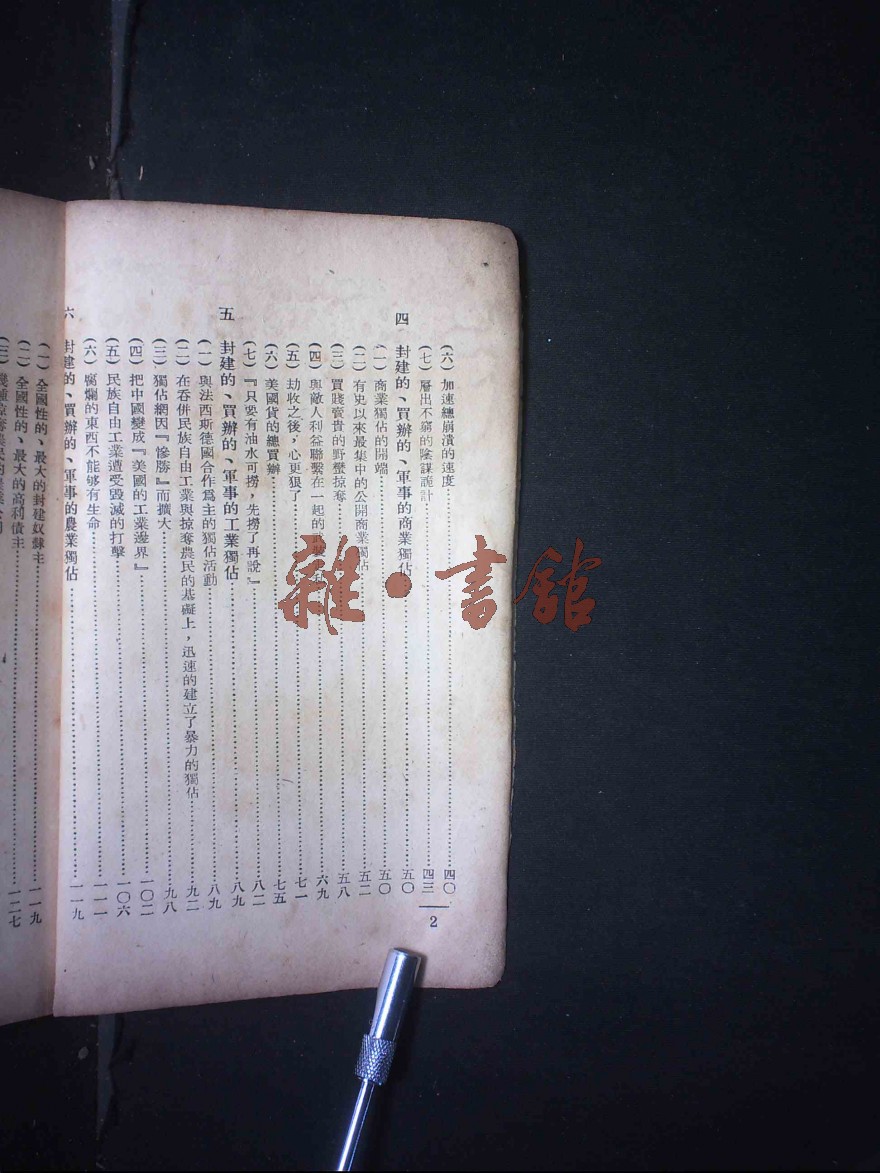 (六) 加速總崩潰的速度……四〇
(七) 層出不窮的陰謀詭計……四三
四 封建的、買辦的、軍事的商業獨佔……五〇
(一) 商業獨佔的開端……五〇
(二) 有史以來最集中的公開商業獨佔……五二
(三) 買賤賣貴的野蠻掠奪……五八
(四) 與敵人利益聯繫在一起的……六九
(五) 劫收之後，心更狠了……七一
(六) 美國貨的總買辦……七五
(七) 『只要有油水可撈，先撈了再說』……八二
五 封建的、買辦的、軍事的工業獨佔……八九
(一) 與法西斯德國合作爲主的獨佔活動……八九
(二) 在吞併民族自由工業與掠奪農民的基礎上，迅速的建立了暴力的獨佔……九二
(三) 獨佔網因『慘勝』而擴大……九八
(四) 把中國變成『美國的工業邊界』……一〇二
(五) 民族自由工業遭受毀滅的打擊……一〇六
(六) 腐爛的東西不能够有生命……一一一
六 封建的、買辦的、軍事的農業獨佔……一一九
(一) 全國性的、最大的封建奴隸主……一一九
(二) 全國性的、最大的高利債主……一二七
2
雜·書館